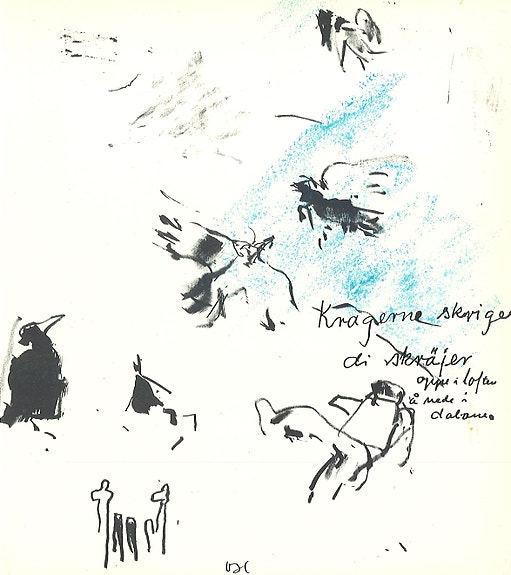 Kragerne skrige
di skräjer
oppe i loften
å nede i
dalane